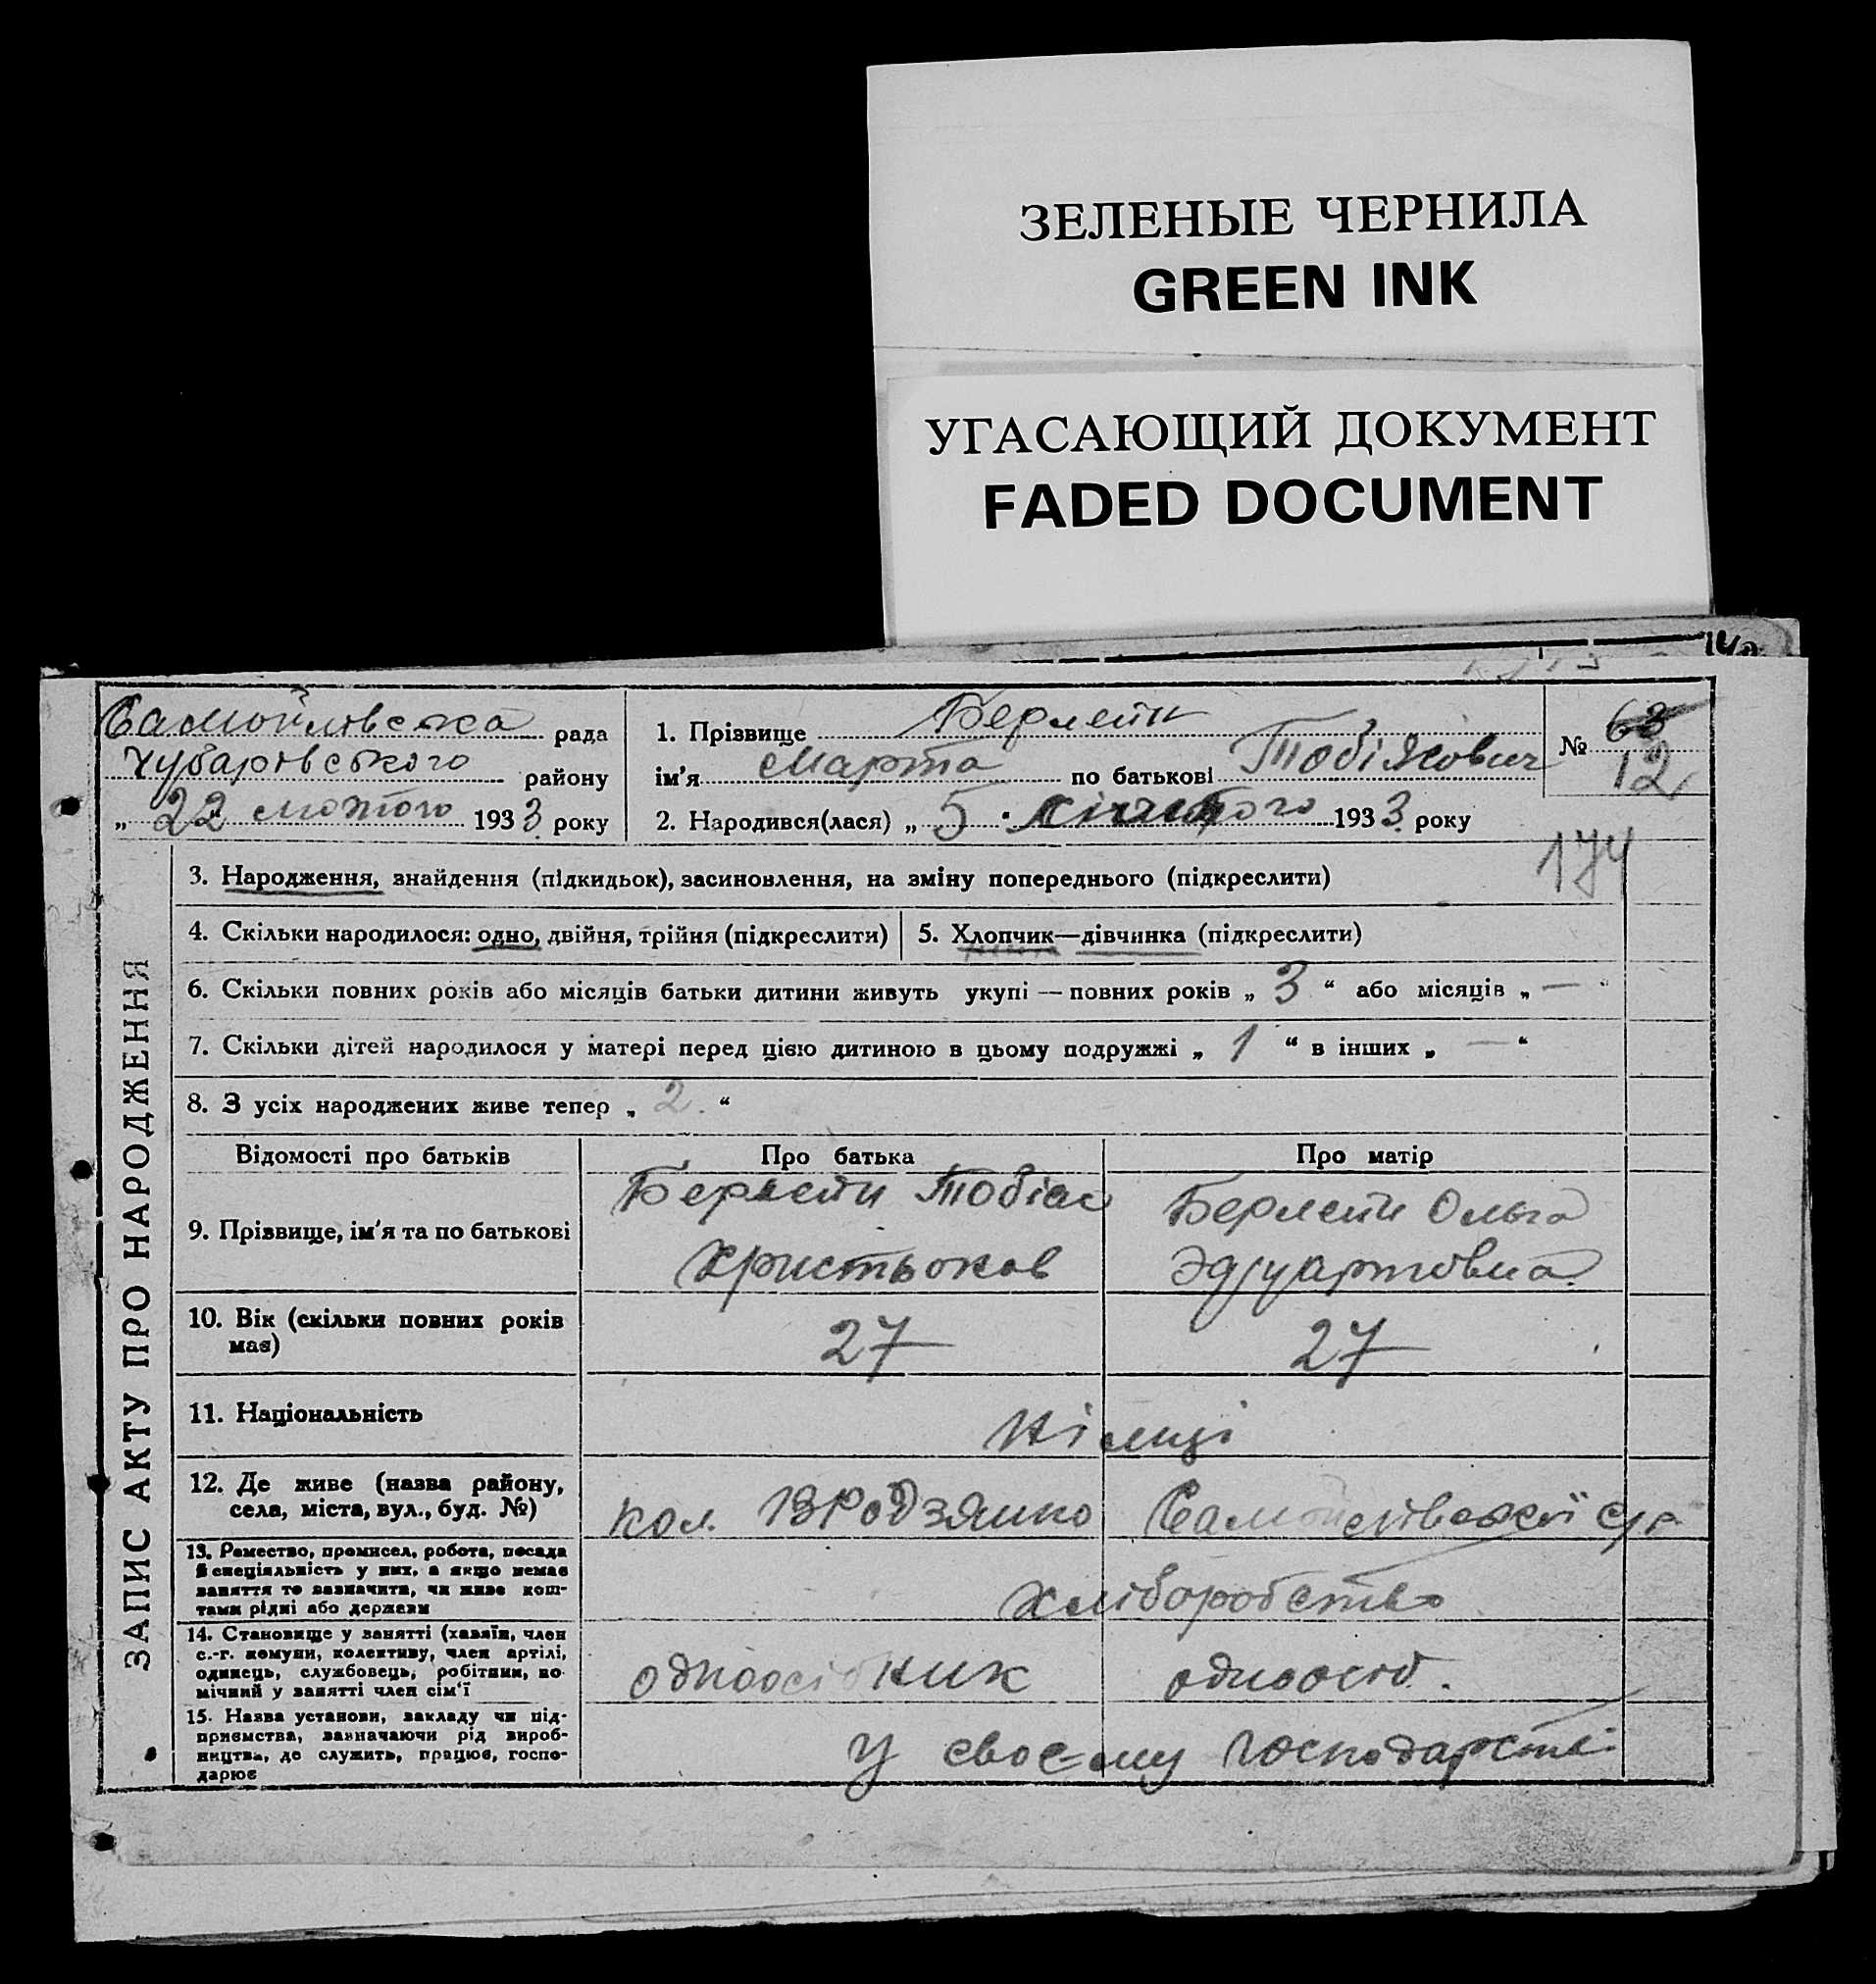 ЗЕЛЕНЫЕ ЧЕРНИЛА
GREEN INK
УГАСАЮЩИЙ ДОКУМЕНТ
FADED DOCUMENT
Самойлівська рада
Чубарівського району
„ 22 лютого 1933 року
1. Прізвище Берлейн
ім'я Марта по батькові Тобіяхович
2. Народився(лася) „ 5 " 1933 року
№ 63
12
174
ЗАПИС АКТУ ПРО НАРОДЖЕННЯ
3. Народження, знайдення (підкидьок), засиновлення, на зміну попереднього (підкреслити)
4. Скільки народилося: одно, двійня, трійня (підкреслити)
5. Хлопчик—дівчинка (підкреслити)
6. Скільки повних років або місяців батьки дитини живуть укупі — повних років „ 3 “ або місяців „ — “
7. Скільки дітей народилося у матері перед цією дитиною в цьому подружжі „ 1 “ в інших „ — “
8. З усіх народжених живе тепер „ 2. “
Відомості про батьків
Про батька
Про матір
9. Прізвище, ім'я та по батькові
Берлейн Тобіас
Христьонов
Берлейн Ольга
Эдуартовна
10. Вік (скільки повних років
має)
27
27
11. Національність
Німці
12. Де живе (назва району,
села, міста, вул., буд. №)
кол. Родзянко
Самойлівської с/р
13. Ремество, промисел, робота, посада
й спеціяльність у них, а якщо немає
заняття то зазначити, чи живе кош-
тами рідні або держави
хліборобство
14. Становище у занятті (хазяїн, член
с.-г. комуни, колективу, член артілі,
одинець, службовець, робітник, по-
мічний у занятті член сім'ї
одноосібник
одноосіб.
15. Назва установи, закладу чи під-
приємства, зазначаючи рід вироб-
ництва, де служить, працює, госпо-
дарює
у своєму господарстві